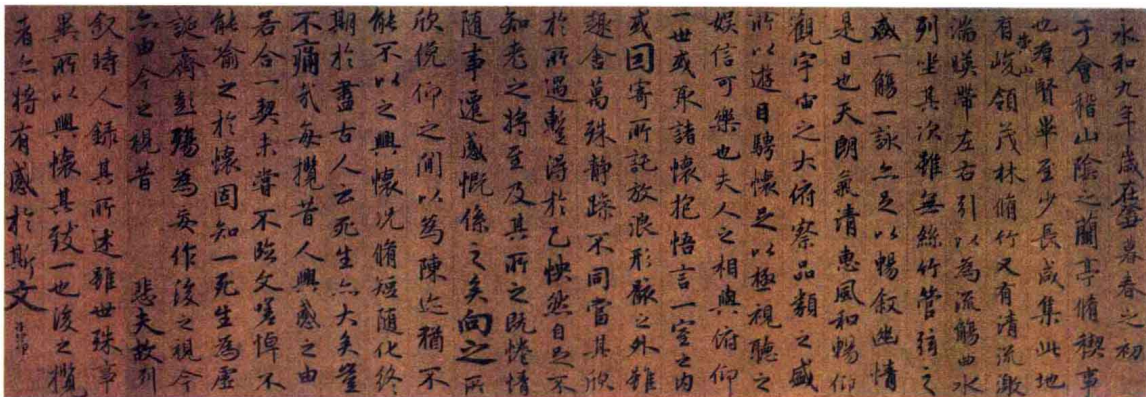 永和九年歲在癸丑暮春之初
于會稽山陰之蘭亭脩稧事
也羣賢畢至少長咸集此地
有崇山峻領茂林脩竹又有清流激
湍暎帶左右引以為流觴曲水
列坐其次雖無絲竹管弦之
盛一觴一詠亦足以暢敘幽情
是日也天朗氣清惠風和暢仰
觀宇宙之大俯察品類之盛
所以遊目騁懷足以極視聽之
娛信可樂也夫人之相與俯仰
一世或取諸懷抱悟言一室之內
或因寄所託放浪形骸之外雖
趣舍萬殊靜躁不同當其欣
於所遇暫得於己怏然自足不
知老之將至及其所之既惓情
隨事遷感慨係之矣向之所
欣俛仰之間以為陳迹猶不
能不以之興懷況脩短隨化終
期於盡古人云死生亦大矣豈
不痛哉每攬昔人興感之由
若合一契未嘗不臨文嗟悼不
能喻之於懷固知一死生為虛
誕齊彭殤為妄作後之視今
亦由今之視昔 悲夫故列
敘時人錄其所述雖世殊事
異所以興懷其致一也後之攬
者亦將有感於斯文